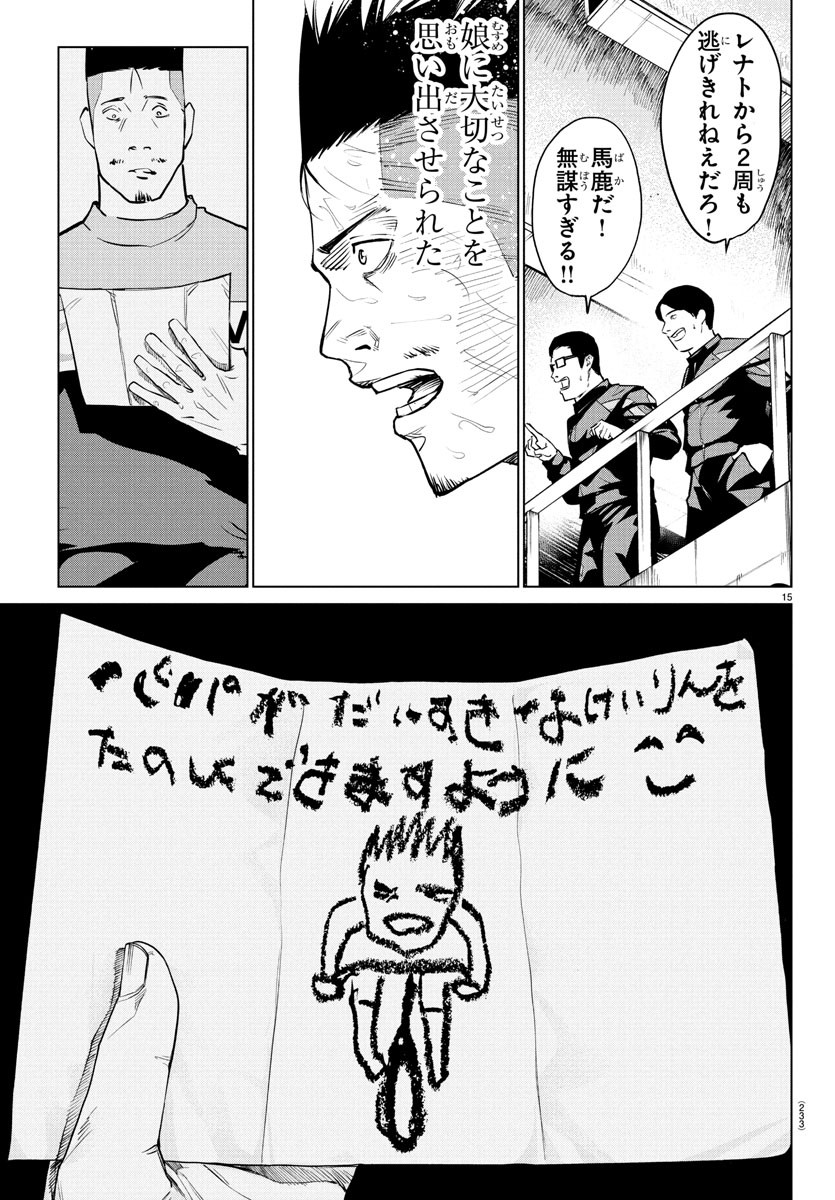 レナトから2周も
逃げきれねえだろ!
馬鹿だ!
無謀すぎる!!
娘に大切なことを
思い出させられた
15
パパがだいすきなけいりんを
たのしくできますように
(233)